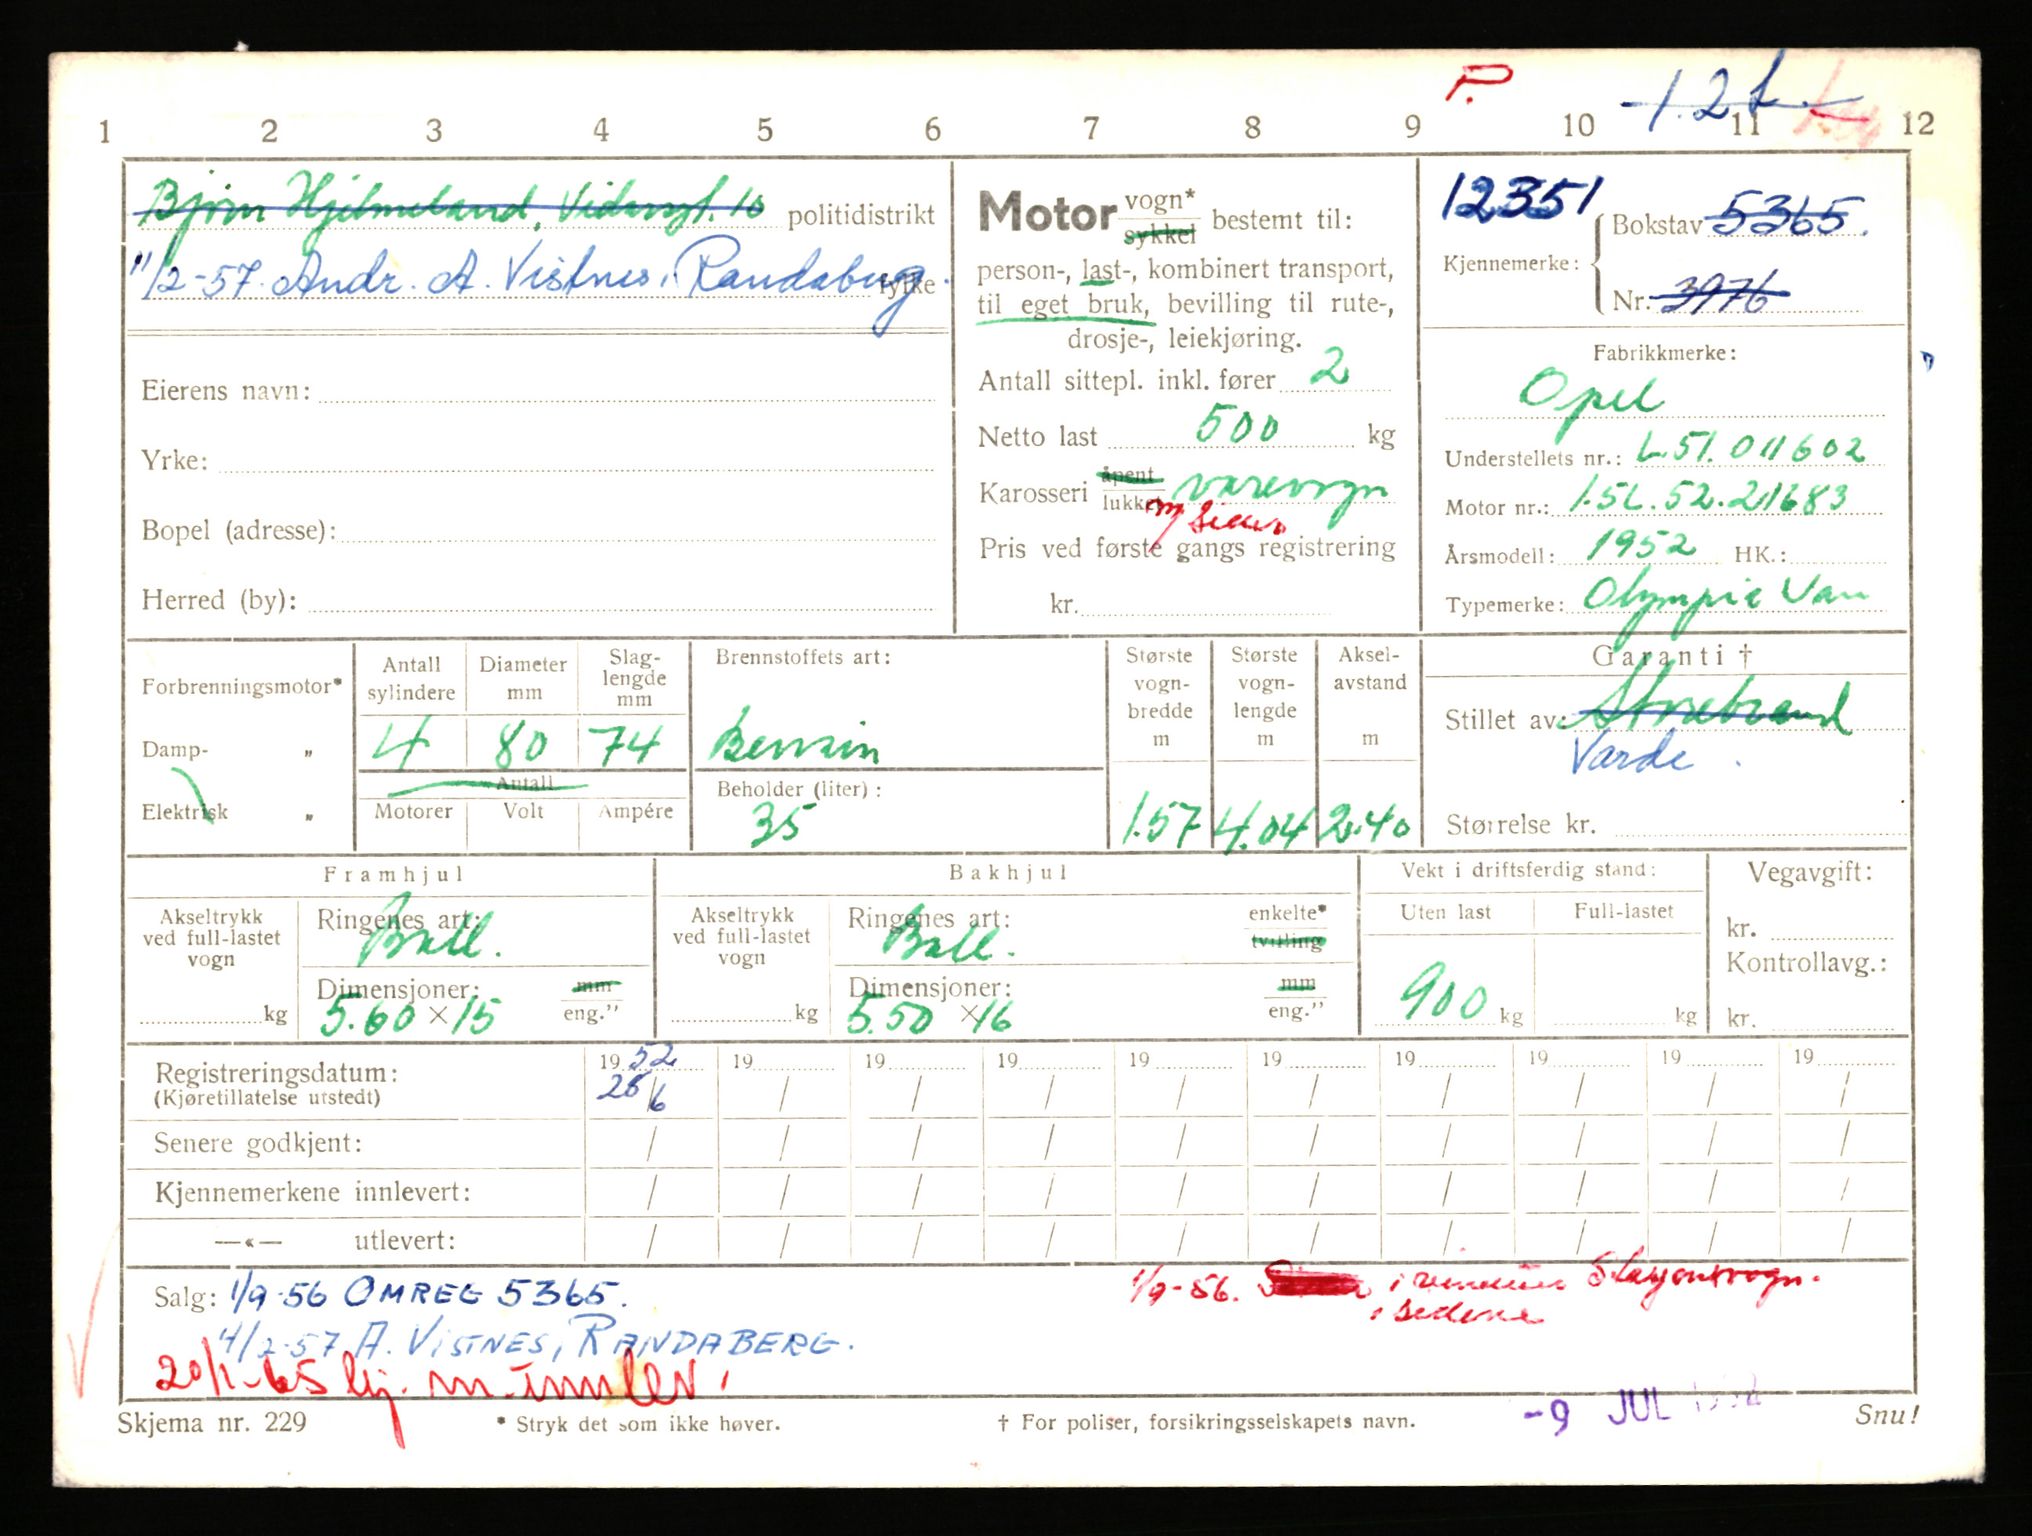 P. 1.2 t
1 2 3 4 5 6 7 8 9 10 11 12
Bjørn Hjelmeland, Vidarsgt. 10 politidistrikt
11/2-57. Andr. A. Vistnes, Randaberg. fylke
Eierens navn:
Yrke:
Bopel (adresse):
Herred (by):
Motor vogn* sykkel bestemt til:
person-, last-, kombinert transport,
til eget bruk, bevilling til rute-,
drosje-, leiekjøring.
Antall sittepl. inkl. fører 2
Netto last 500 kg
Karosseri åpent lukket varevogn
m/ sider
Pris ved første gangs registrering
kr.
12351
Bokstav 5365.
Kjennemerke:
Nr. 3976
Fabrikkmerke:
Opel
Understellets nr.: L.51.011602
Motor nr.: 1.5L.52.21683
Årsmodell: 1952 HK.:
Typemerke: Olympia Van
Forbrenningsmotor*
Damp- „
Elektrisk „
Antall sylindere
Diameter mm
Slag- lengde mm
4 80 74
Antall
Motorer Volt Ampére
Brennstoffets art:
Bensin
Beholder (liter):
35
Største vogn- bredde m
1.57
Største vogn- lengde m
4.04
Aksel- avstand m
2.40
Garanti †
Stillet av: Storebrand
Varde.
Størrelse kr.
Framhjul
Akseltrykk ved full-lastet vogn
kg
Ringenes art:
Ball.
Dimensjoner: mm
5.60 × 15 eng.”
Bakhjul
Akseltrykk ved full-lastet vogn
kg
Ringenes art: enkelte*
Ball. tvilling
Dimensjoner: mm
5.50 × 16 eng.”
Vekt i driftsferdig stand:
Uten last Full-lastet
900 kg kg
Vegavgift:
kr.
Kontrollavg.:
kr.
Registreringsdatum: 1952 19 19 19 19 19 19 19 19 19
(Kjøretillatelse utstedt) 26/6 / / / / / / / / /
Senere godkjent: / / / / / / / / / /
Kjennemerkene innlevert: / / / / / / / / / /
—«— utlevert: / / / / / / / / / /
Salg: 1/9-56 OMREG 5365.
1/9-56. i Stasjonsvogn.
i sidene
4/2-57 A. VISTNES, RANDABERG.
20/1-65 kj. m. innlev.
Skjema nr. 229
* Stryk det som ikke høver.
† For poliser, forsikringsselskapets navn.
-9 JUL
Snu!